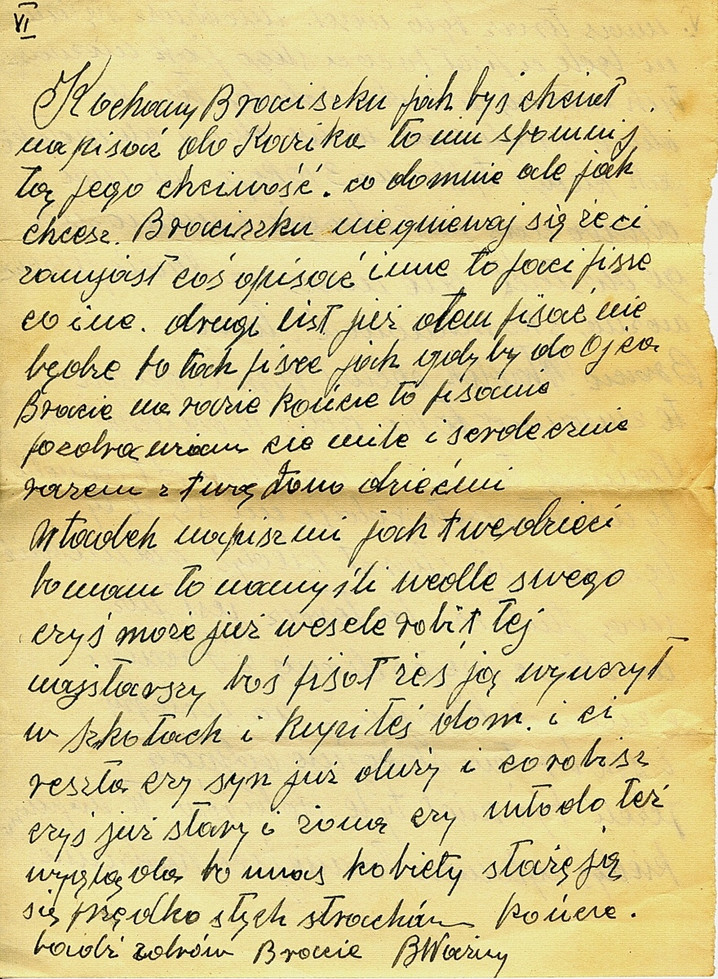 VI
Kochany Braciszku jak byś chciał
napisać do Kazika to mu spomnij
tą jego chciwość. co domnie ale jak
chcesz. Braciszku niegniewaj się żeci
zamjast coś opisać inne to jaci pisze
co ine. drugi list już otem pisać nie
będze bo tak pisze jak gdyby do Ojca
Bracie na razie kończe to pisanie
pozdrawiam cie mile i serdecznie
razem z twą żono dziećmi
Władek napisz mi jak twe dzieci
bo mam to namyśli wedle swego
czyś może już wesele robił tej
najstarszy boś pisał żeś ją wyuczył
w szkołach i kupiłeś dom. i ci
reszta czy syn już duży i co robisz
czyś już stary i żona czy młodo też
wygląda bo unas kobiety starzeją
się prędko stych strachów kończe.
bądź zdrów Bracie